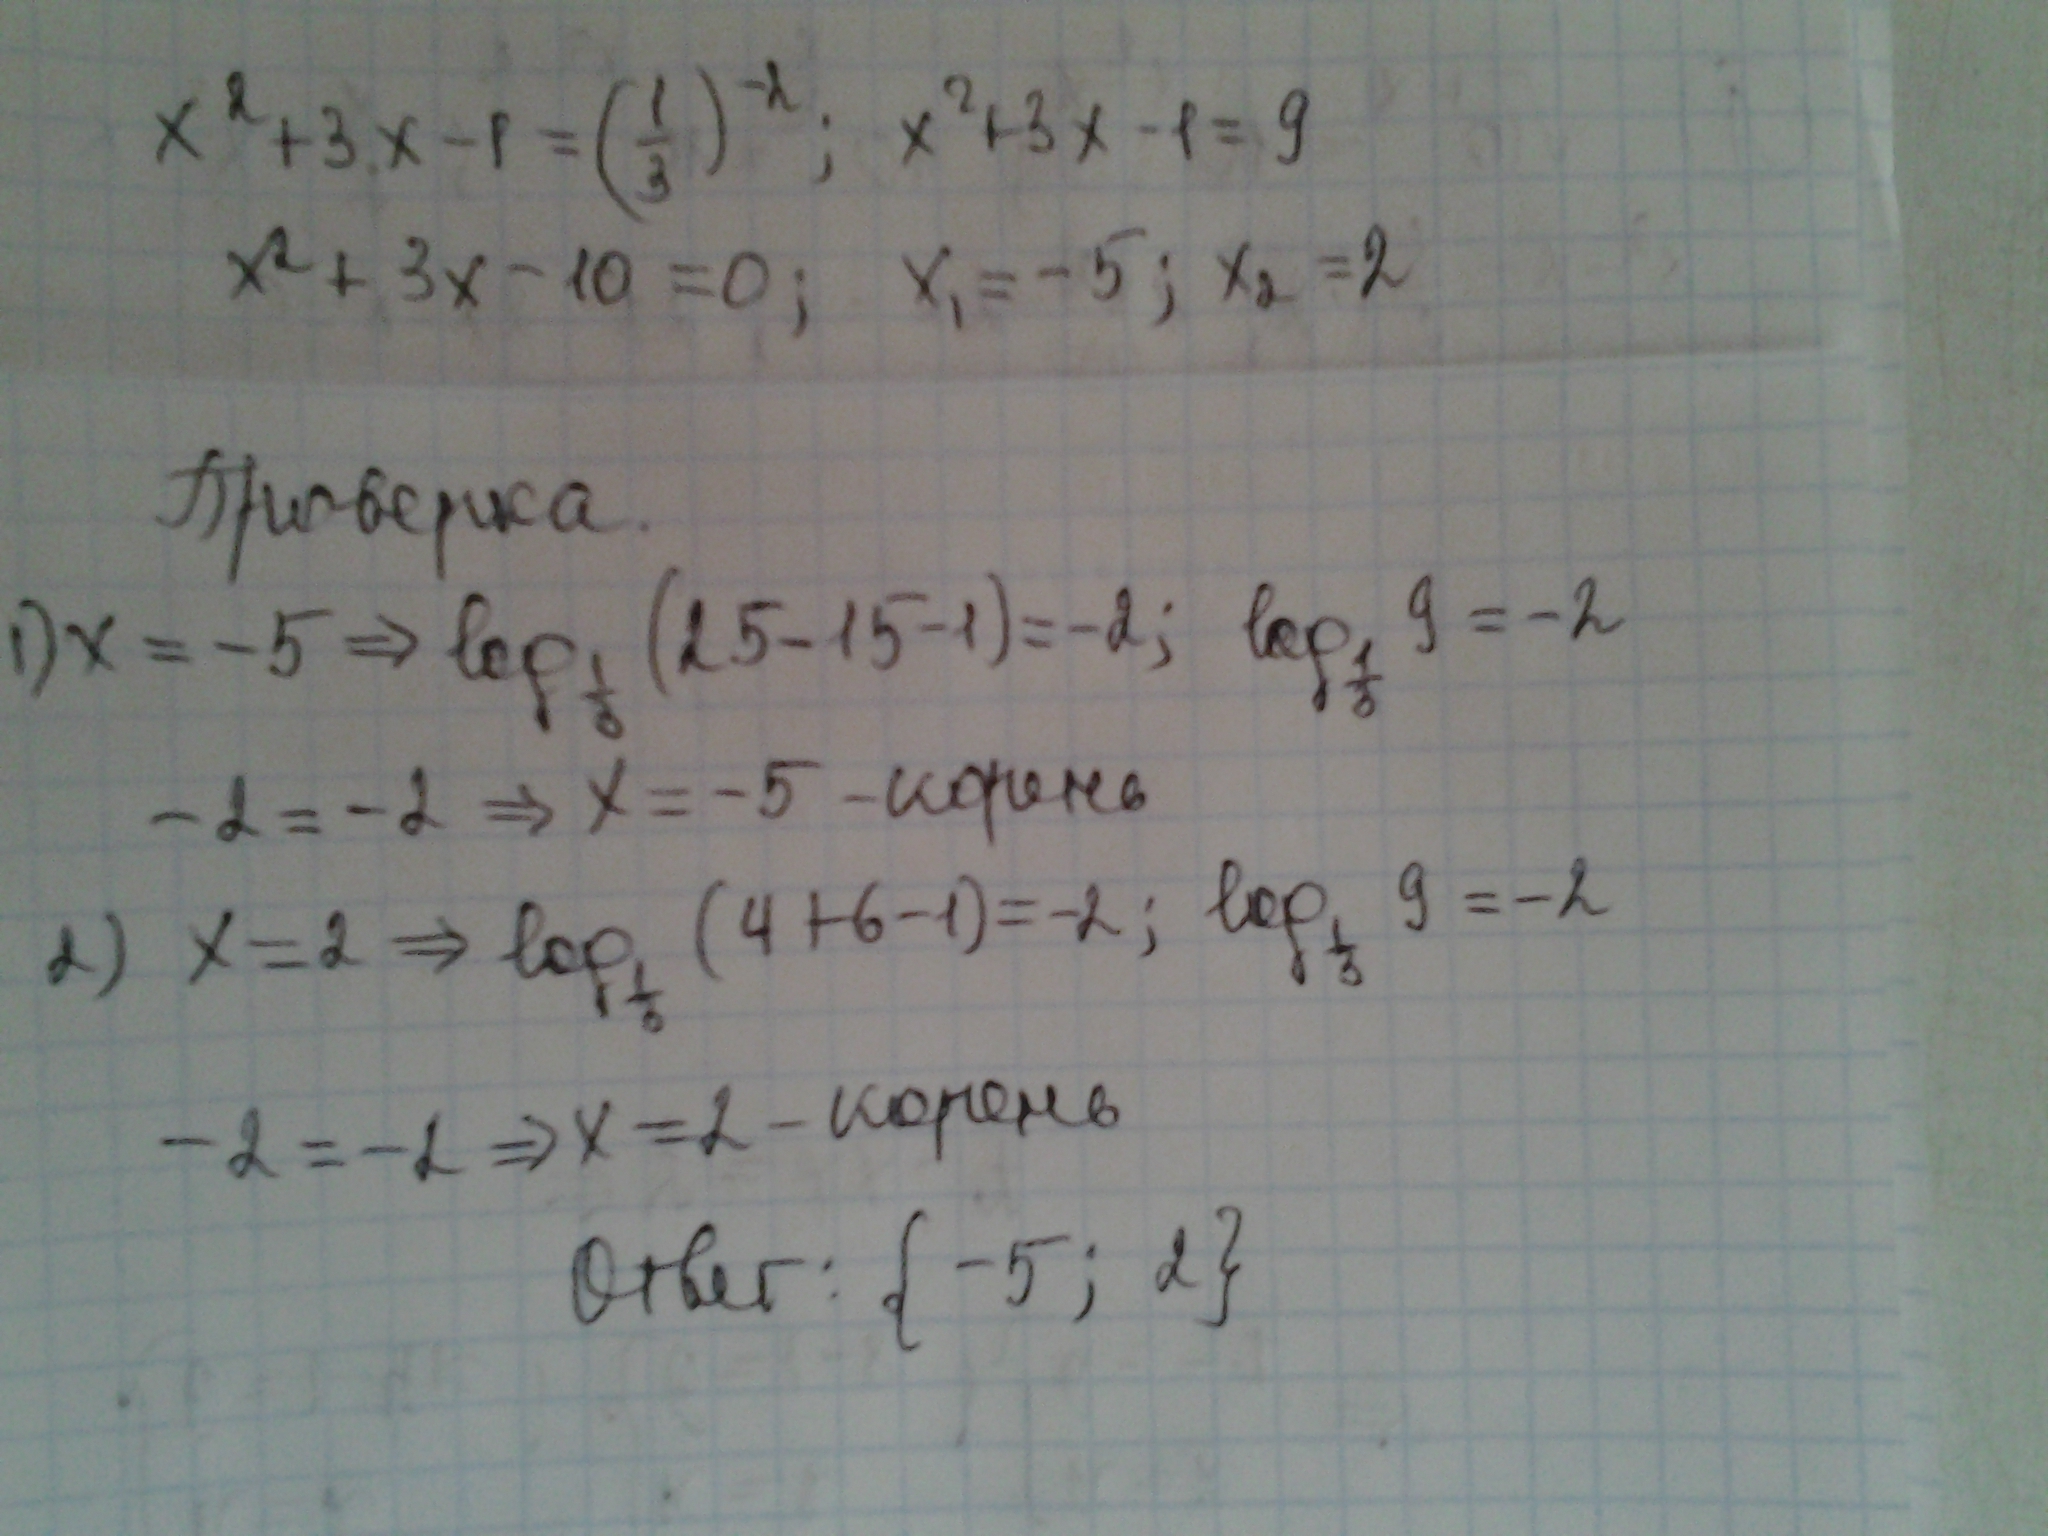 x² + 3x - 1 = (1/3)⁻²; x² + 3x - 1 = 9
x² + 3x - 10 = 0; x₁ = -5; x₂ = 2
Проверка.
1) x = -5 ⇒ log_{1/3} (25 - 15 - 1) = -2; log_{1/3} 9 = -2
-2 = -2 ⇒ x = -5 - корень
2) x = 2 ⇒ log_{1/3} (4 + 6 - 1) = -2; log_{1/3} 9 = -2
-2 = -2 ⇒ x = 2 - корень
Ответ: {-5; 2}